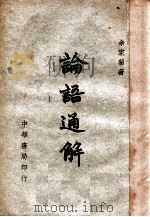 余家菊著
論語通解
中華書局印行